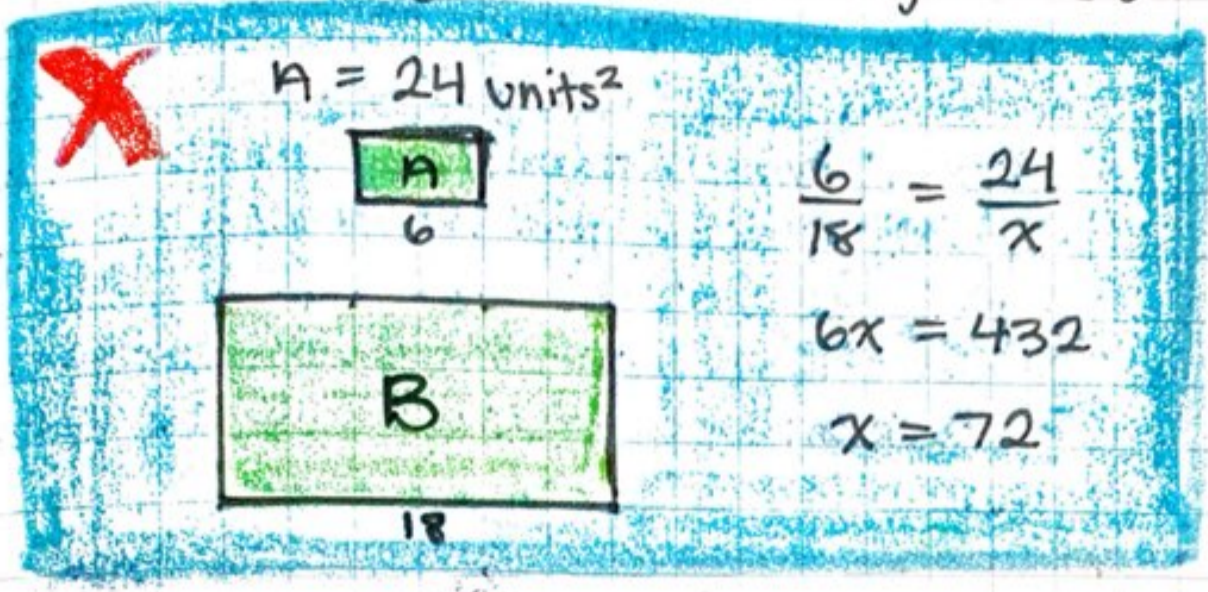 A = 24 units²
A
6
B
18
6/18 = 24/x
6x = 432
x = 72